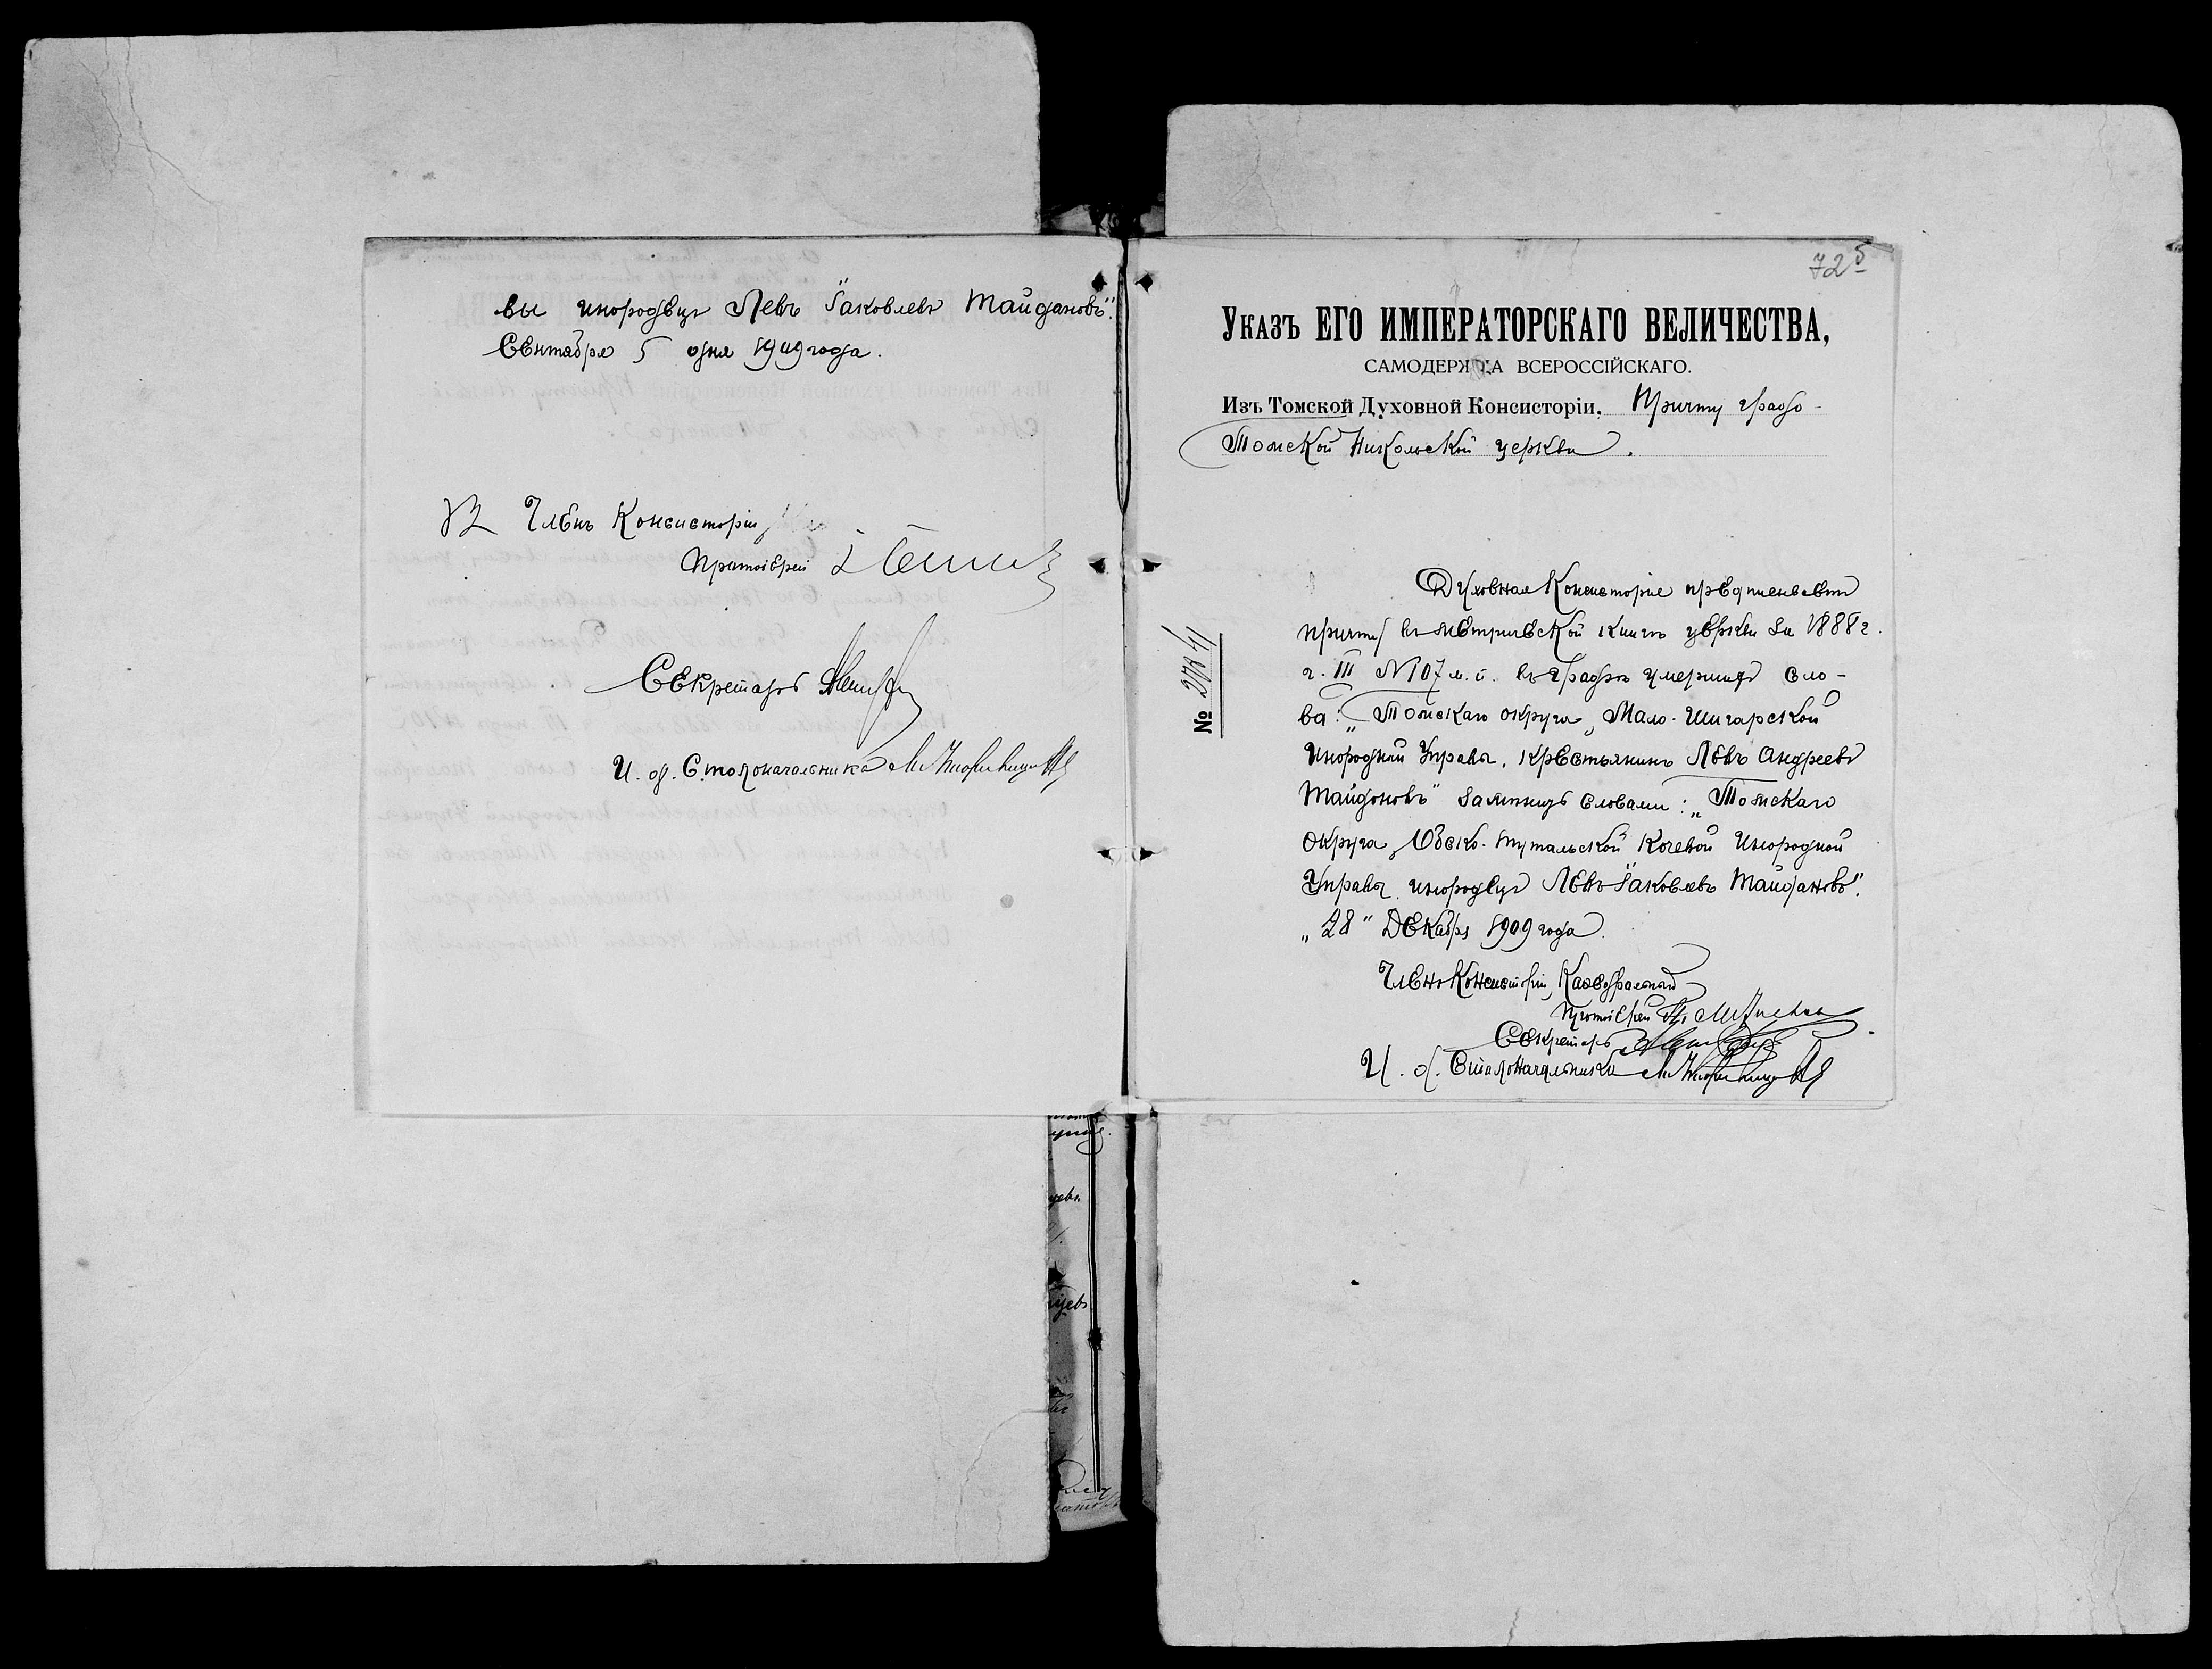 вы инородецъ Левъ Яковлевъ Майдановъ".
Сентября 5 дня 1909 года.
Членъ Консисторіи,
Протоіерей
Секретарь
И. д. Столоначальника
72
УКАЗЪ ЕГО ИМПЕРАТОРСКАГО ВЕЛИЧЕСТВА,
САМОДЕРЖЦА ВСЕРОССІЙСКАГО.
Изъ Томской Духовной Консисторіи, Причту градо-
Томской Никольской церкви.
№
Духовная Консисторія предписываетъ
причту въ метрической книгѣ церкви за 1888 г.
ч. III № 107 м. п. въ графѣ умершихъ сло-
ва: „Томскаго округа, Мало-Шигарской
Инородной Управы, крестьянинъ Левъ Андреевъ
Майдоновъ" замѣнить словами: „Томскаго
округа, Обско-Тутальской Кочевой Инородной
Управы инородецъ Левъ Яковлевъ Майдановъ".
„28" Декабря 1909 года.
Членъ Консисторіи, Каѳедральный
Протоіерей
Секретарь
И. д. Столоначальника